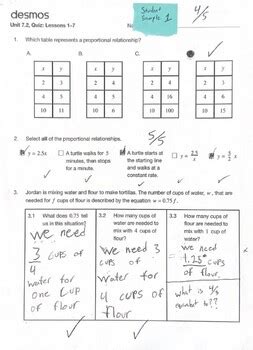 desmos
Unit 7.2, Quiz: Lessons 1–7
Student
Sample 1
4/5
1. Which table represents a proportional relationship?
A. B. C.
x y x y x y x y
2 3 2 4 2 2 3
4 5 3 6 4 4 6
10 11 6 10 16 100 10 15
2. Select all of the proportional relationships.
5/5
y = 2.5x
A turtle walks for 5
minutes, then stops
for a minute.
A turtle starts at
the starting line
and walks at a
constant rate.
3. Jordan is mixing water and flour to make tortillas. The number of cups of water, w, that are
needed for f cups of flour is described by the equation w = 0.75f.
3.1 What does 0.75 tell
us in this situation?
we need
3 cups of
4
water for
one cup
of flour
3.2 How many cups of
water are needed to
mix with 4 cups of
flour?
we need 3
cups of
water for
4 cups of
flour
3.3 How many cups of
flour are needed to
mix with 1 cup of
water?
we need
1.25 cups
of flour.
what is 4/3
equivalent to??